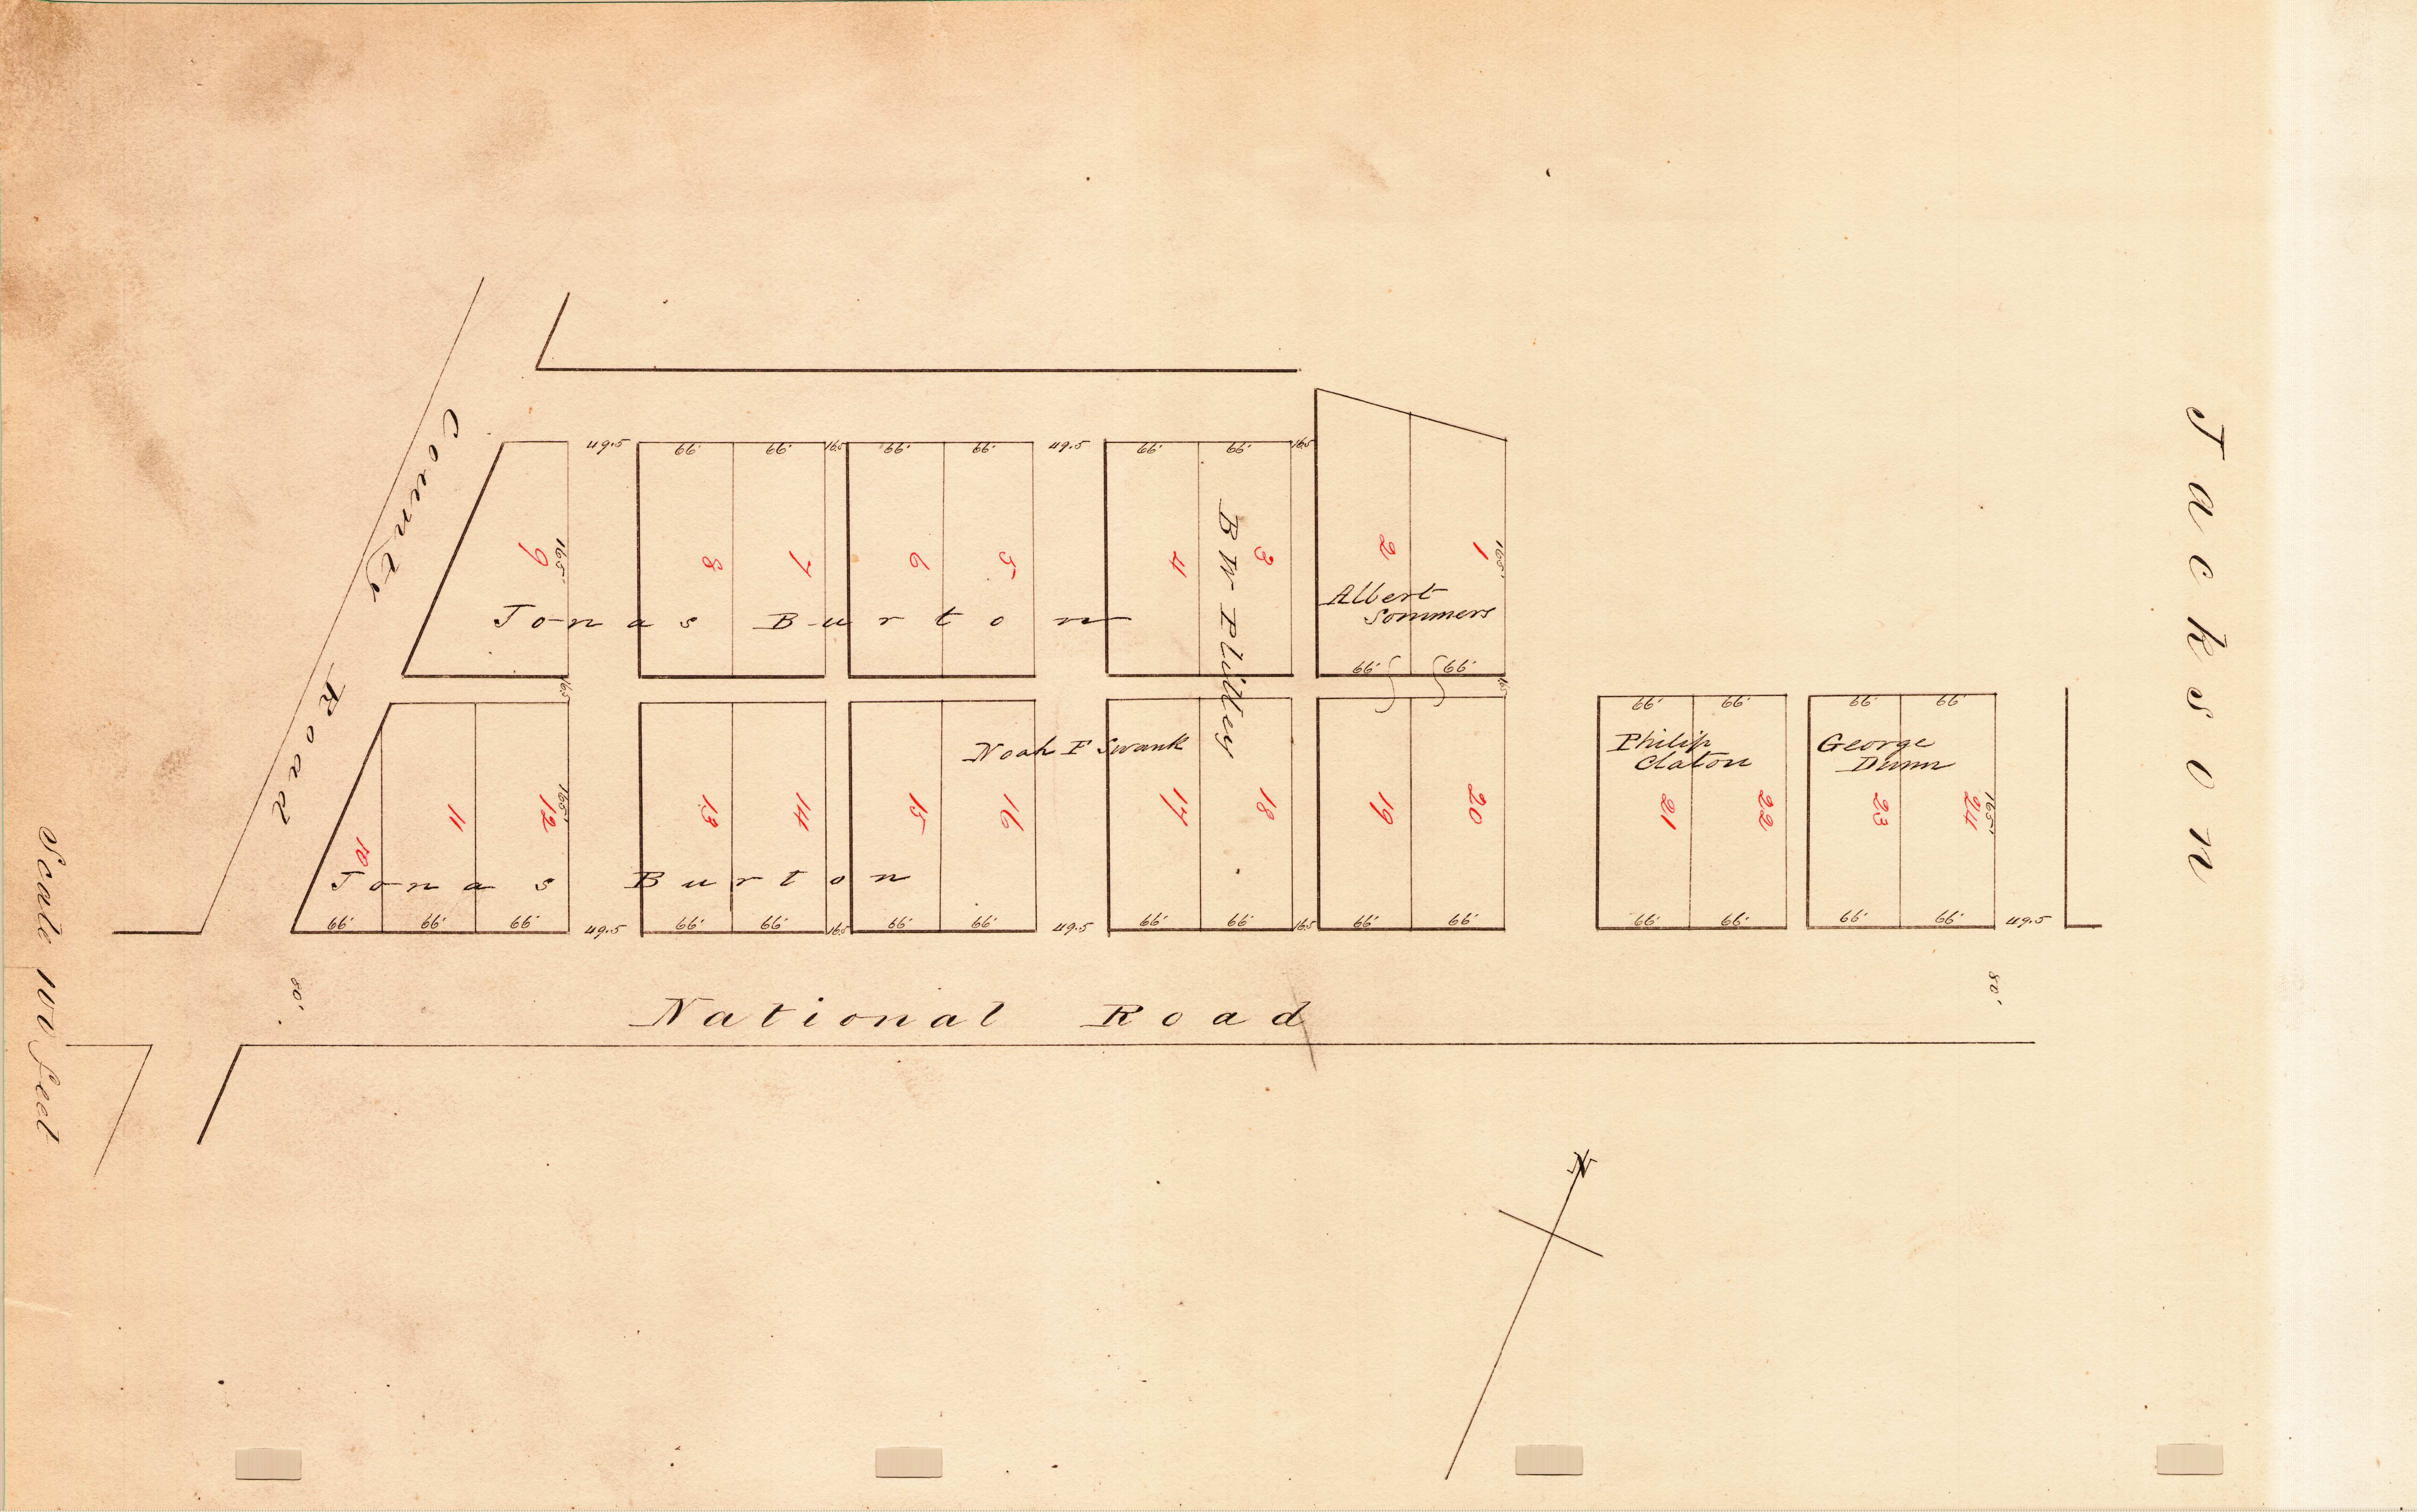 Jackson
County Road
49.5 66' 66' 16.5 66' 66' 49.5 66' 66' 16.5
9 165' 8 7 6 5 4 3 2 1 165'
Jonas Burton
B W Plilley
Albert
Sommers
66' 66'
16.5 16.5
66' 66' 66' 66'
Noah F Swank
Philip
Claton
George
Dunn
10 11 12 165' 13 14 15 16 17 18 19 20 21 22 23 24 165'
Jonas Burton
66' 66' 66' 49.5 66' 66' 16.5 66' 66' 49.5 66' 66' 16.5 66' 66' 66' 66' 66' 66' 49.5
80' 80'
National Road
Scale 100 feet
N